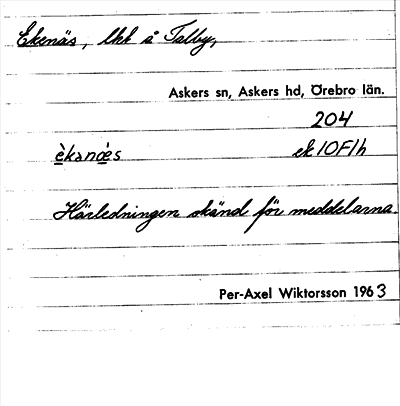 Ekenäs, lhk å Talby,
Askers sn, Askers hd, Örebro län.
204
èkanæ̀s ek 10F1h
Härledningen okänd för meddelarna.
Per-Axel Wiktorsson 1963